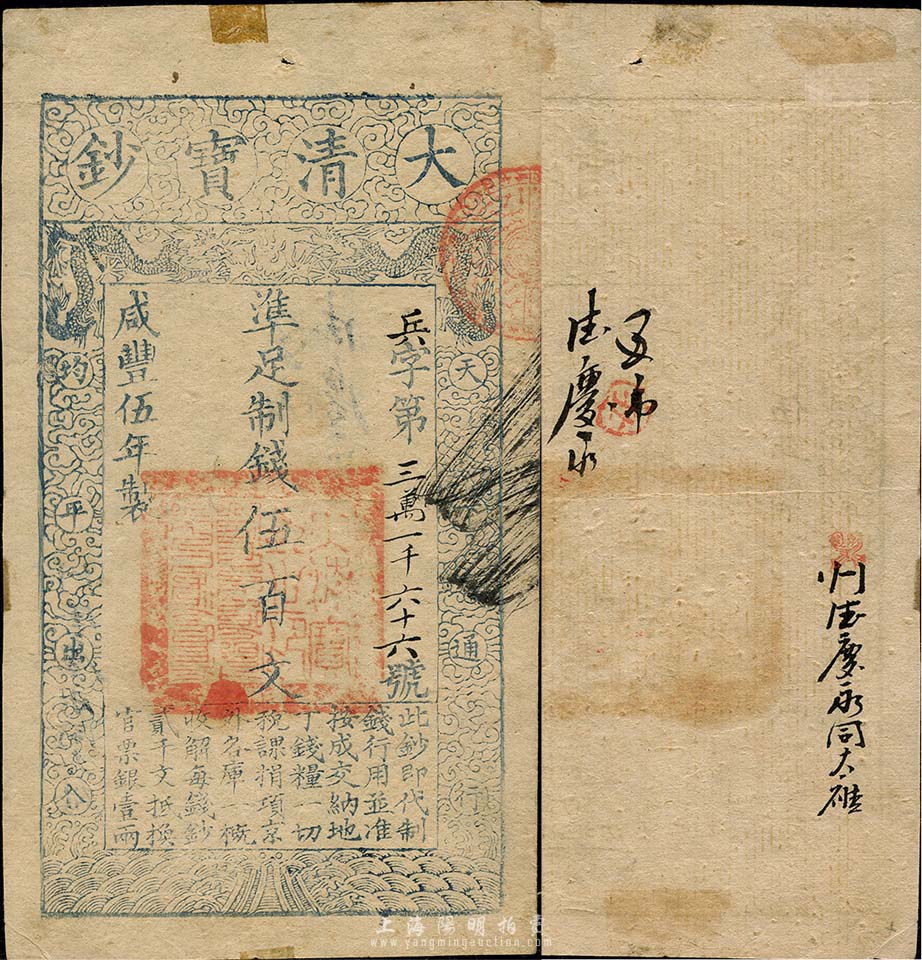 大清寶鈔
天下通行
兵字第三萬一千六十六號
準足制錢伍百文
咸豐伍年製
均平出入
此鈔即代制
錢行用並准
按成交納地
丁錢糧一切
稅課捐項京
外各庫一概
收解每錢鈔
貳千文抵換
官票銀壹兩
德慶永
上海陽明拍賣
www.yangmingauction.com